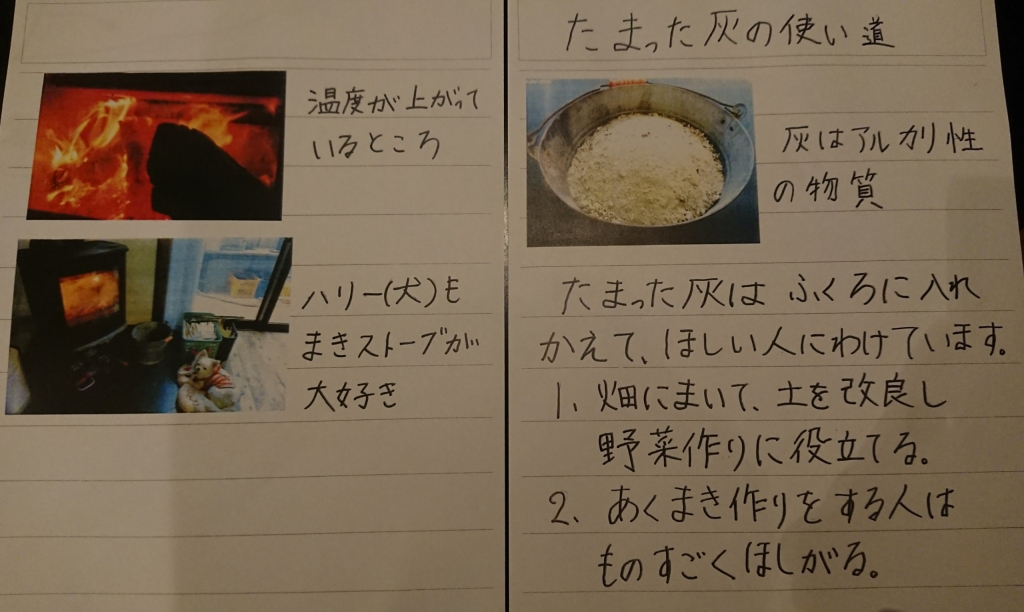 温度が上がって
いるところ
ハリー(犬)も
まきストーブが
大好き
たまった灰の使い道
灰はアルカリ性
の物質
たまった灰は ふくろに入れ
かえて、ほしい人にわけています。
1、畑にまいて、土を改良し
野菜作りに役立てる。
2、あくまき作りをする人は
ものすごくほしがる。